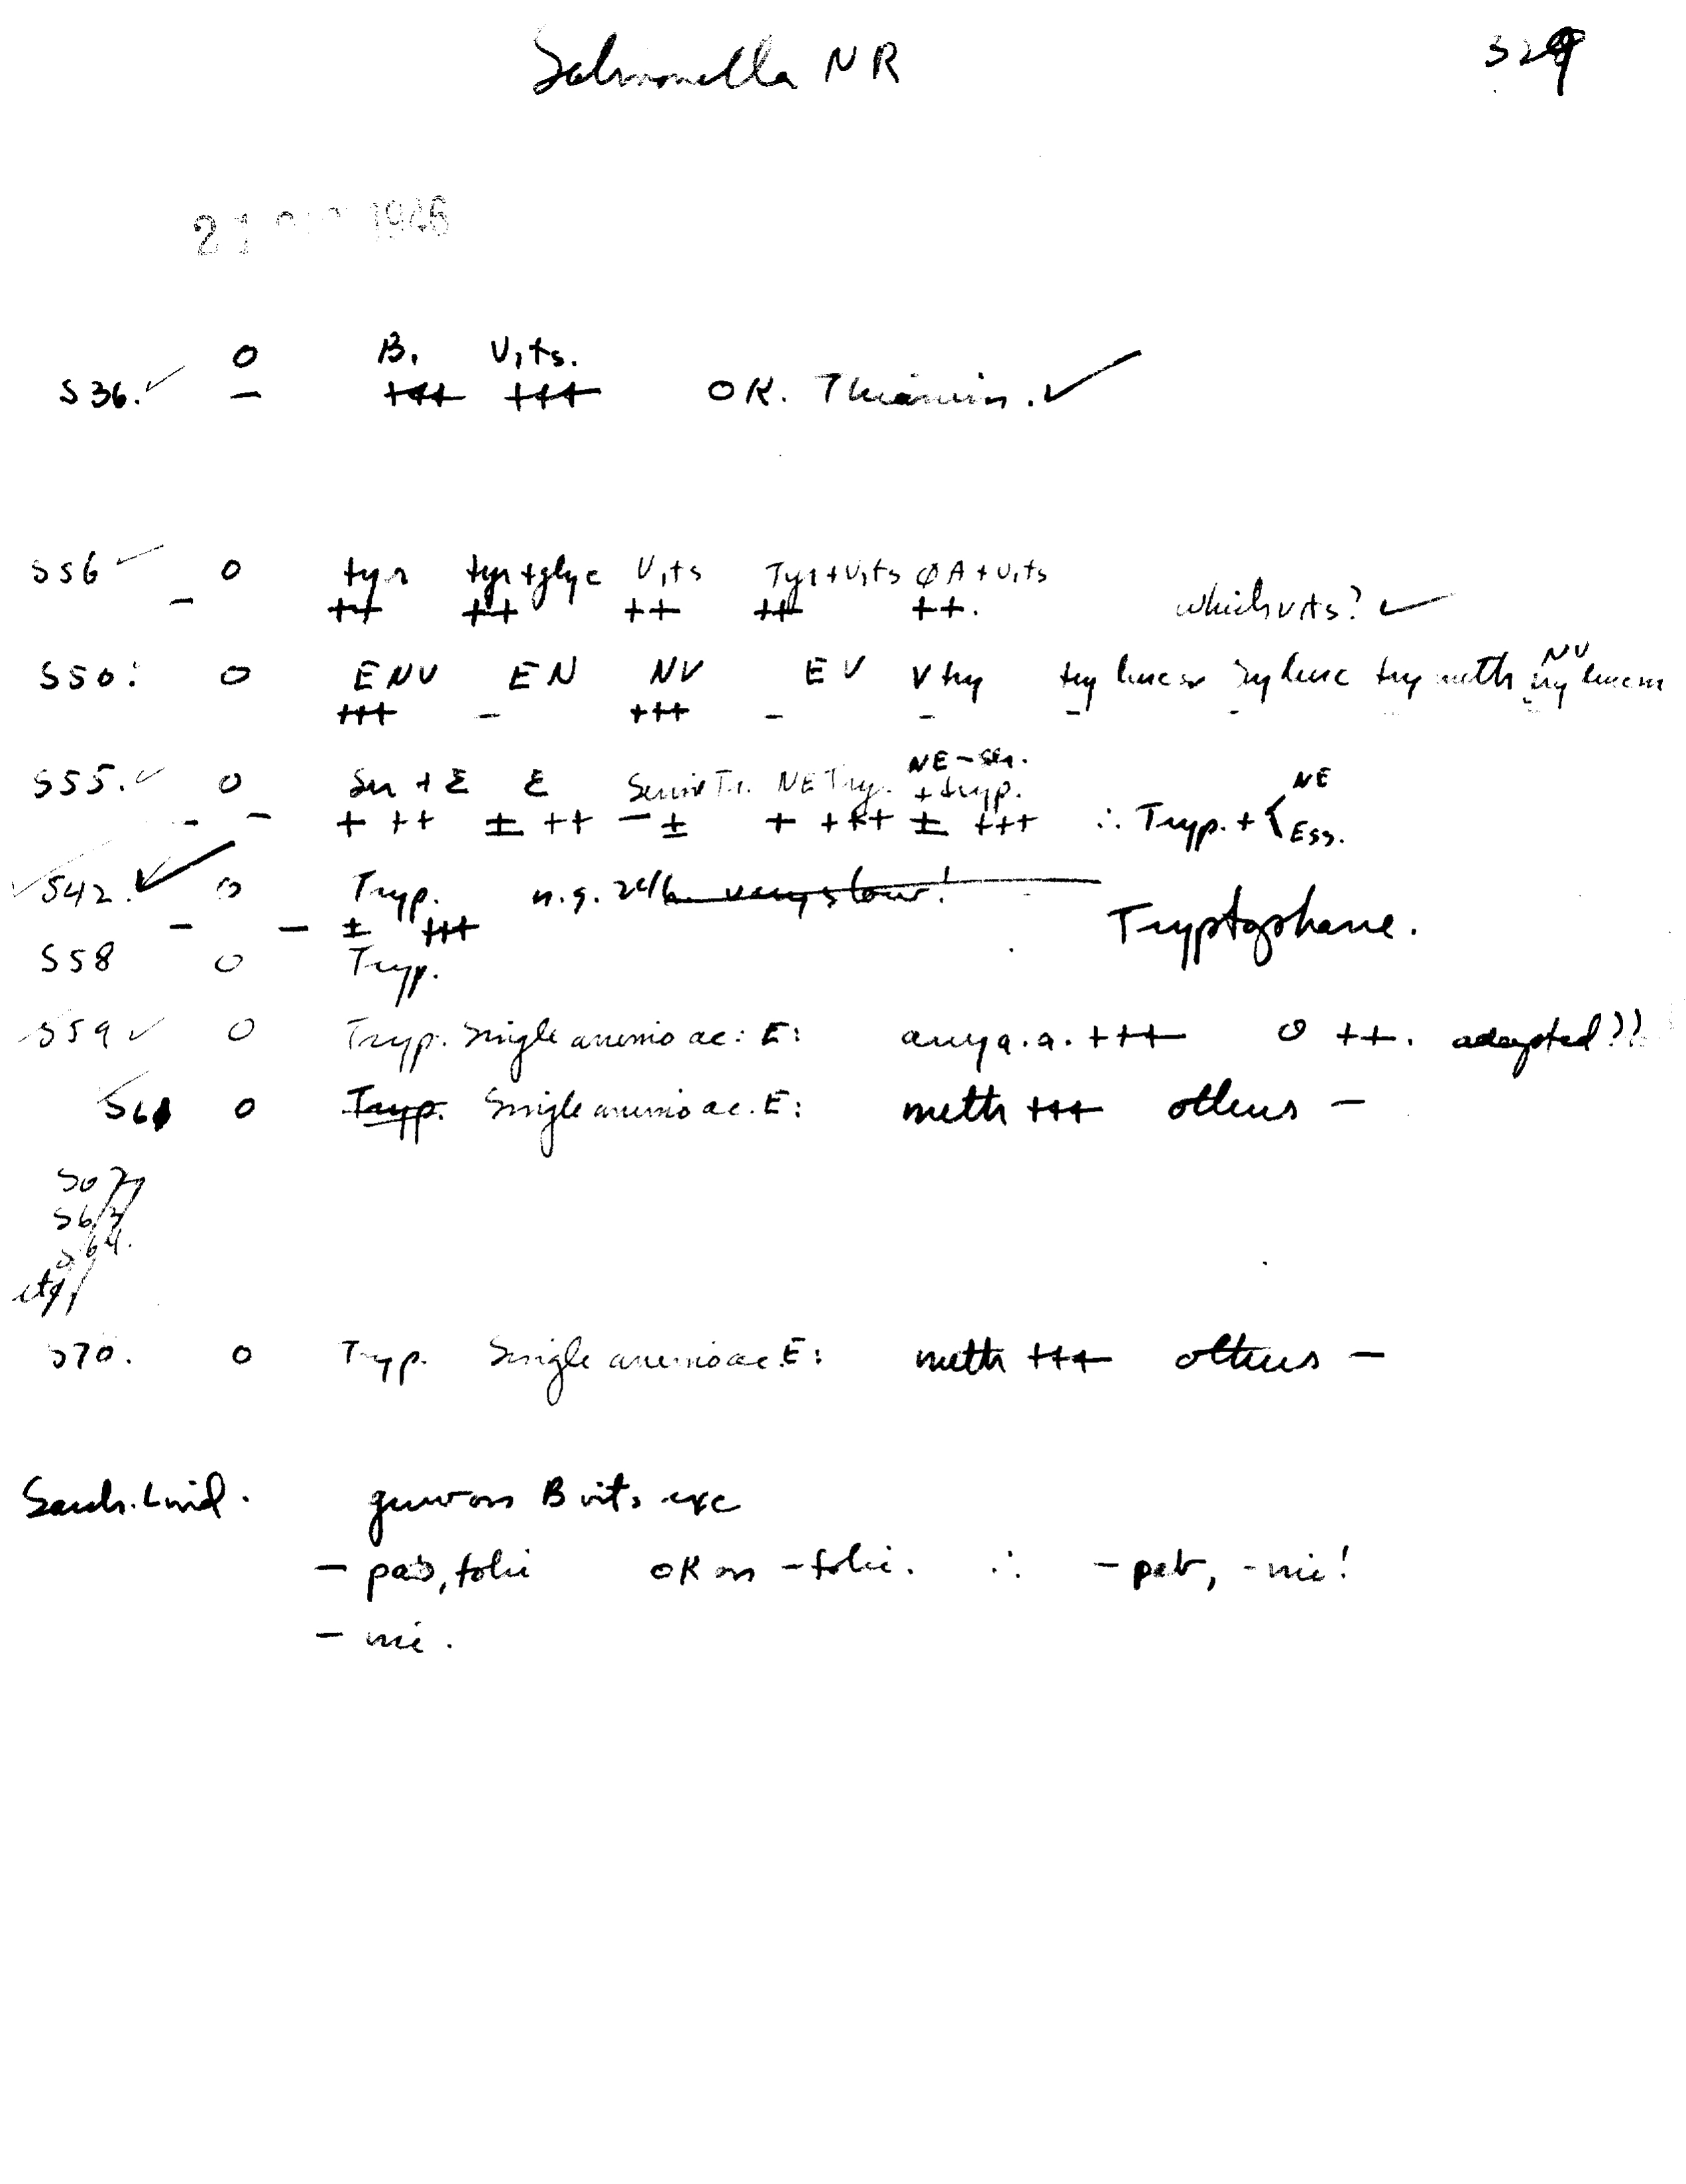 Salmonella NR 329
21 1946
O B1 Vits.
S36. ✓ – +++ +++ OK. Thiamin. ✓
S56 ✓ O tyr tyr+glyc Vits Tyr+Vits φA+vits
– ++ ++ ++ ++ ++. which vits? ✓
NV
S50: O ENV EN NV EV V try try try try meth try
+++ – +++ – – – – – –
NE–ser. NE
S55. ✓ O Ser + E E Ser Tr. NE Try. + tryp.
– – + ++ ± ++ – ± + +++ ± +++ ∴ Tryp. + { Ess.
✓ S42. ✓ O Tryp. n.g. 24h. very slow!
– – ± +++ Tryptophane.
S58 O Tryp.
S59 ✓ O Tryp. Single amino ac: E: any a.a. +++ O ++. adapted??
S61 O Tryp. Single amino ac. E: meth +++ others –
S67
S63
S64.
etc
S70. O Tryp. Single amino ac. E: meth +++ others –
grows on B vits exc
– pab, folic OK on – folic. ∴ – pab, – nic!
– nic.